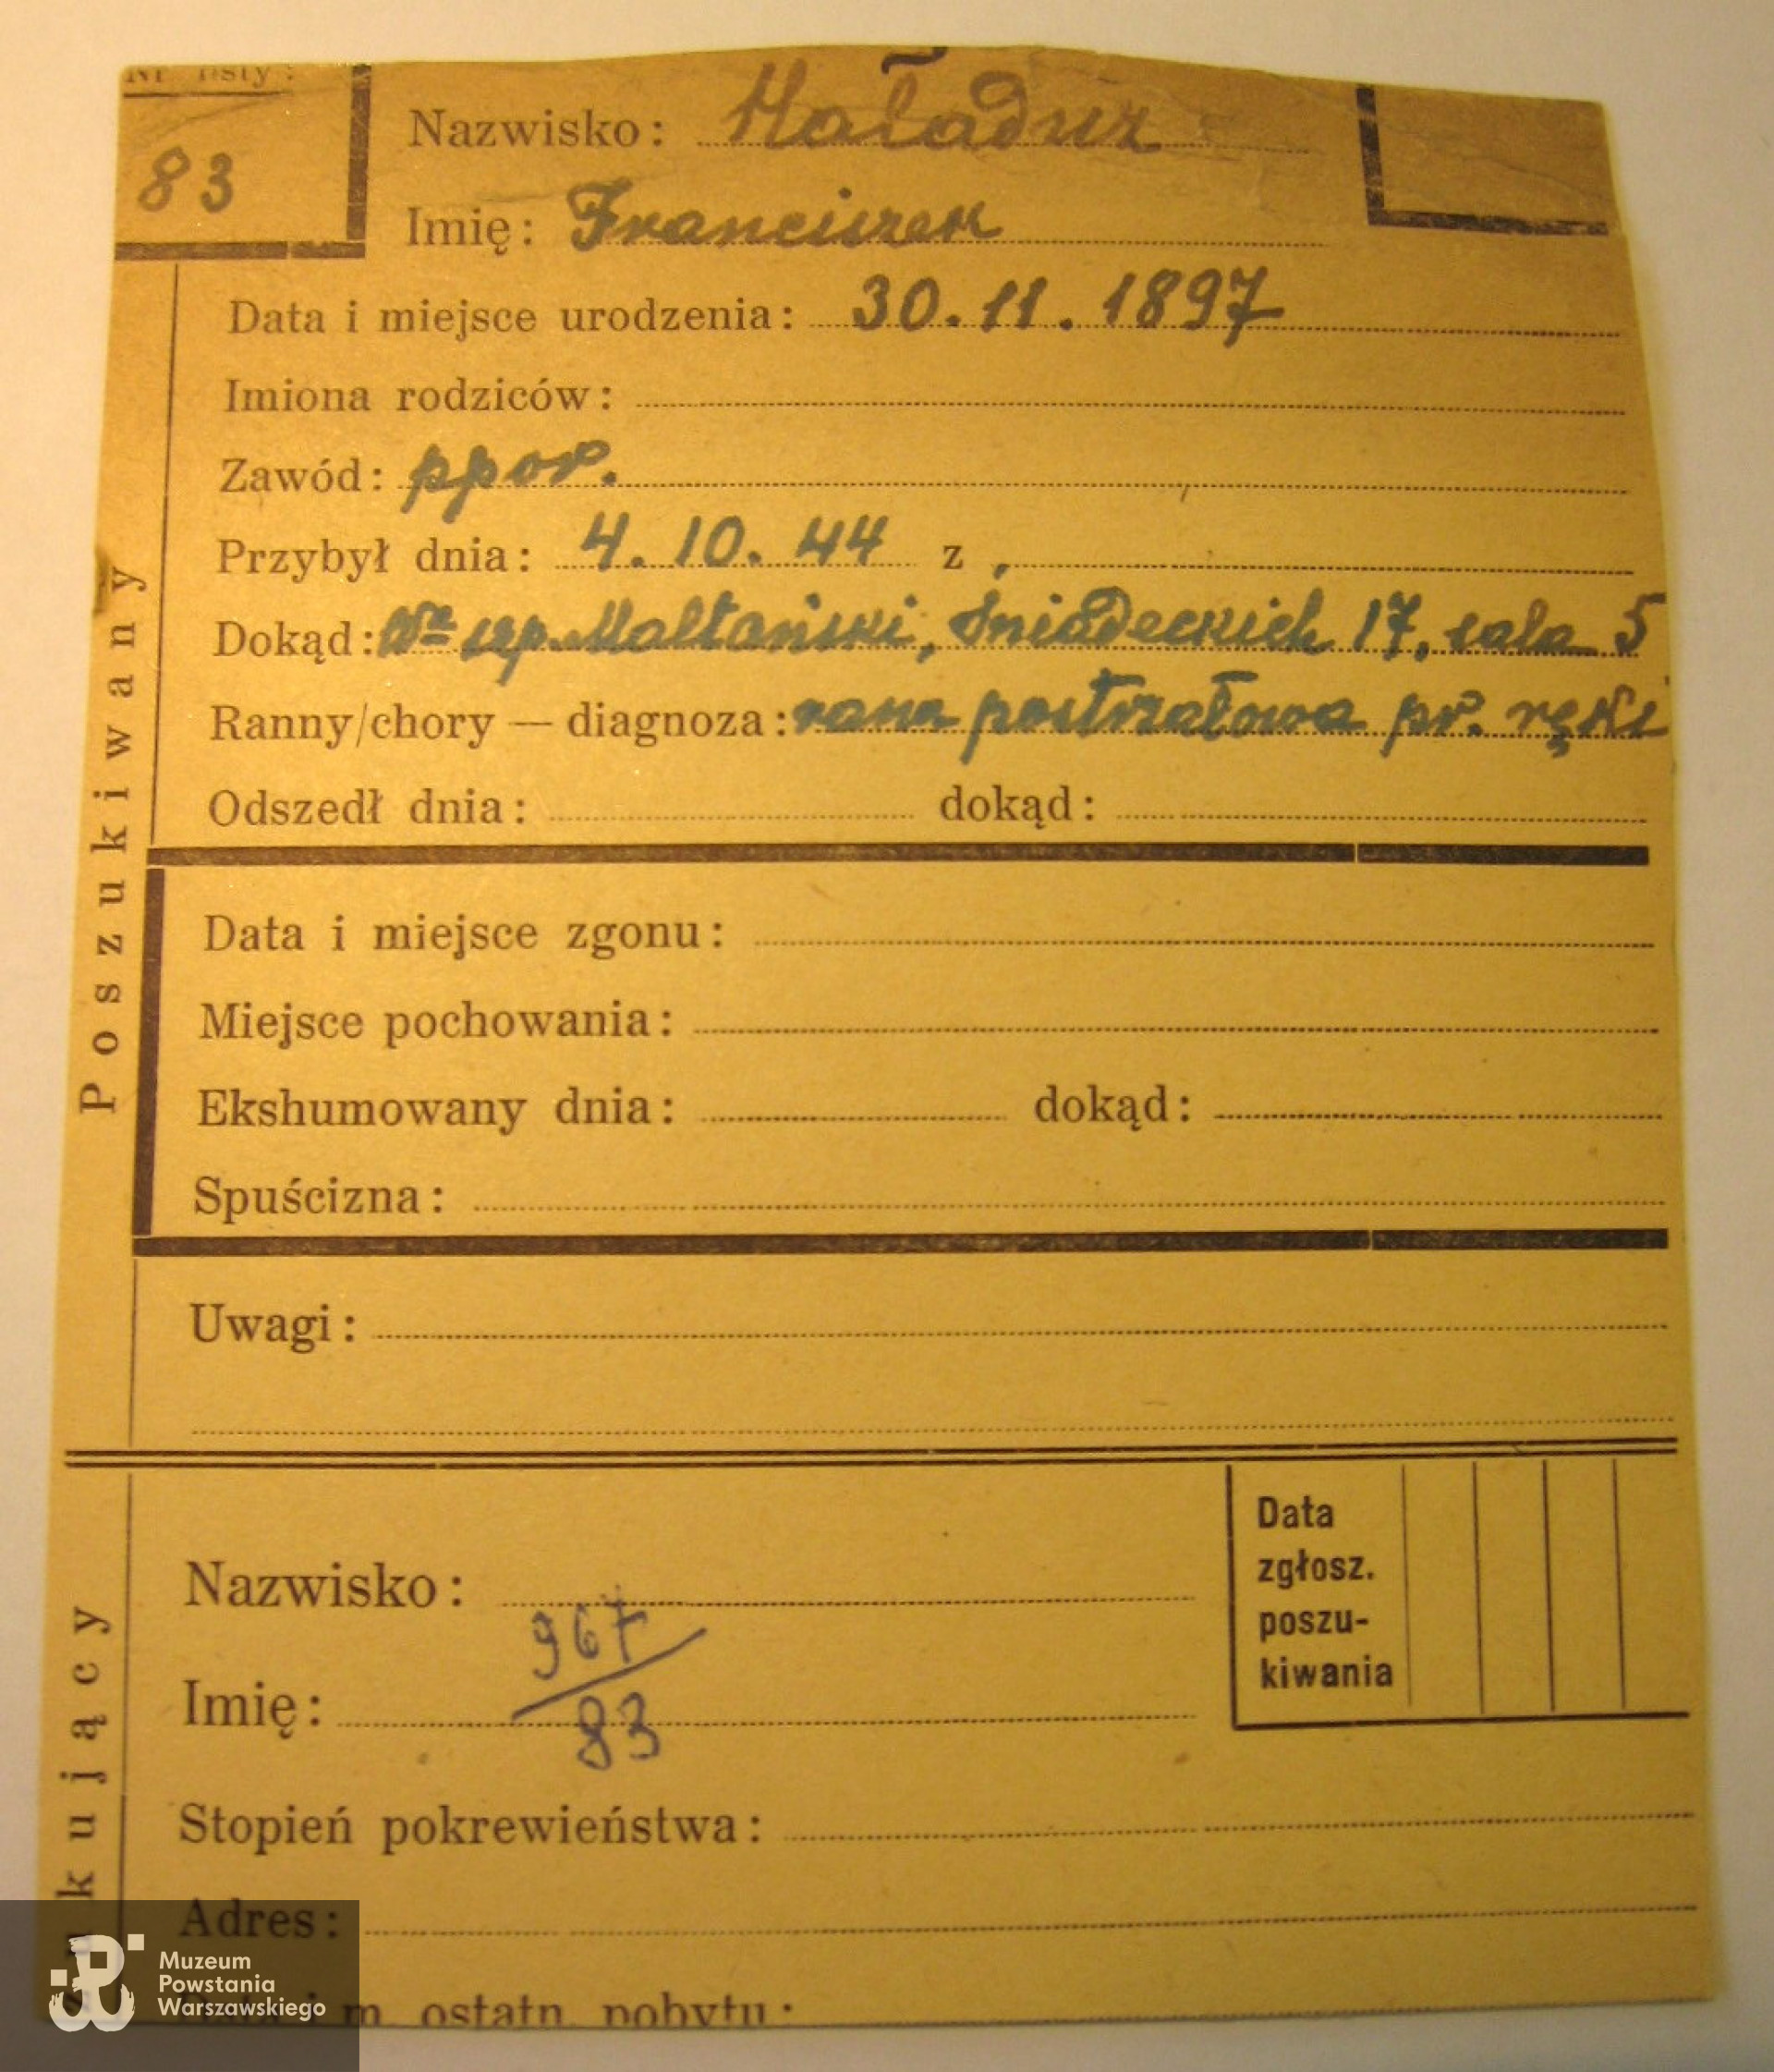 Nr listy:
83
Nazwisko: Haładuz
Imię: Franciszek
Data i miejsce urodzenia: 30.11.1897
Imiona rodziców:
Zawód: ppor.
Przybył dnia: 4.10.44 z
Dokąd: szp. Maltański, Śniadeckich 17, sala 5
Ranny/chory — diagnoza: rana postrzałowa pr. ręki
Odszedł dnia: dokąd:
Data i miejsce zgonu:
Miejsce pochowania:
Ekshumowany dnia: dokąd:
Spuścizna:
Uwagi:
Poszukiwany
Nazwisko:
Imię:
967/83
Data
zgłosz.
poszu-
kiwania
Stopień pokrewieństwa:
Adres:
m. ostatn. pobytu:
kujący
Muzeum
Powstania
Warszawskiego